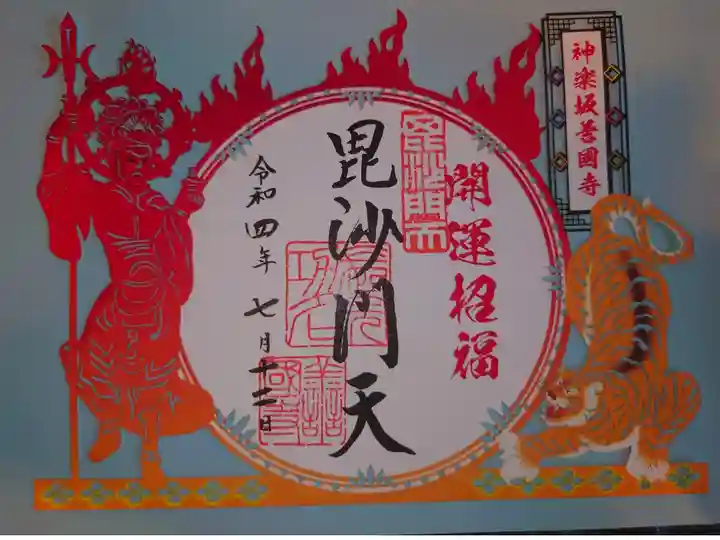 神楽坂善國寺
開運招福
毘沙門天
毘沙門天
令和四年七月十二日